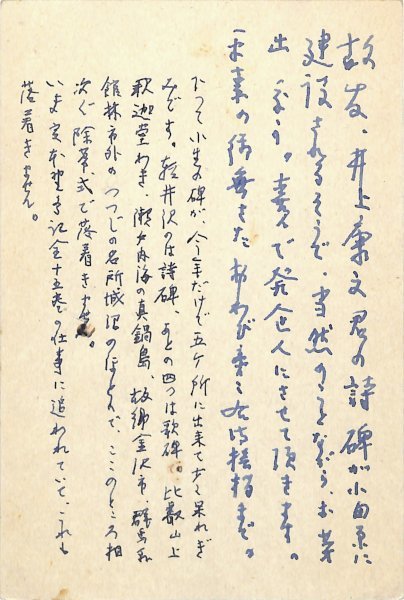 故友、井上康文君の詩碑が小田原に
建設されるそうで、当然のことながら、お芽
出度う。喜んで発企人にさせて頂きます。
平素の御無さた おわび 乗ら 右御挨拶まで。
かつて小生の碑が、今年だけで五ケ所に出来て 呆れぎ
みです。軽井沢のは詩碑、あとの四つは歌碑。比叡山上
釈迦堂わき、瀬戸内海の真鍋島、故郷金沢市、群馬県
館林市外のつつじの名所城沼のほとりで、ここのところ相
次ぐ除幕式で落着きません。
いま 記念十五巻の仕事に追われていて、これも
落着きません。